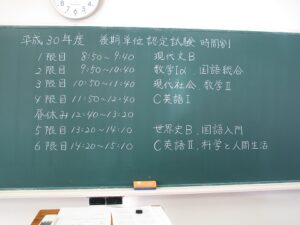 平成30年度 後期単位認定試験 時間割
1限目 8:50~9:40 現代文B
2限目 9:50~10:40 数学Iα、国語総合
3限目 10:50~11:40 現代社会、数学Ⅱ
4限目 11:50~12:40 C英語Ⅰ
昼休み 12:40~13:20
5限目 13:20~14:10 世界史B、国語入門
6限目 14:20~15:10 C英語Ⅱ、科学と人間生活